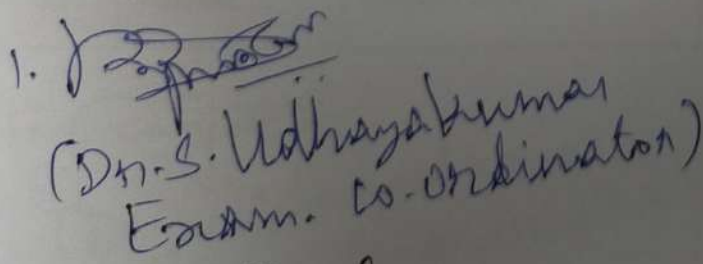 1.
(Dr. S. Udhayakumar
Exam. co-ordinator)